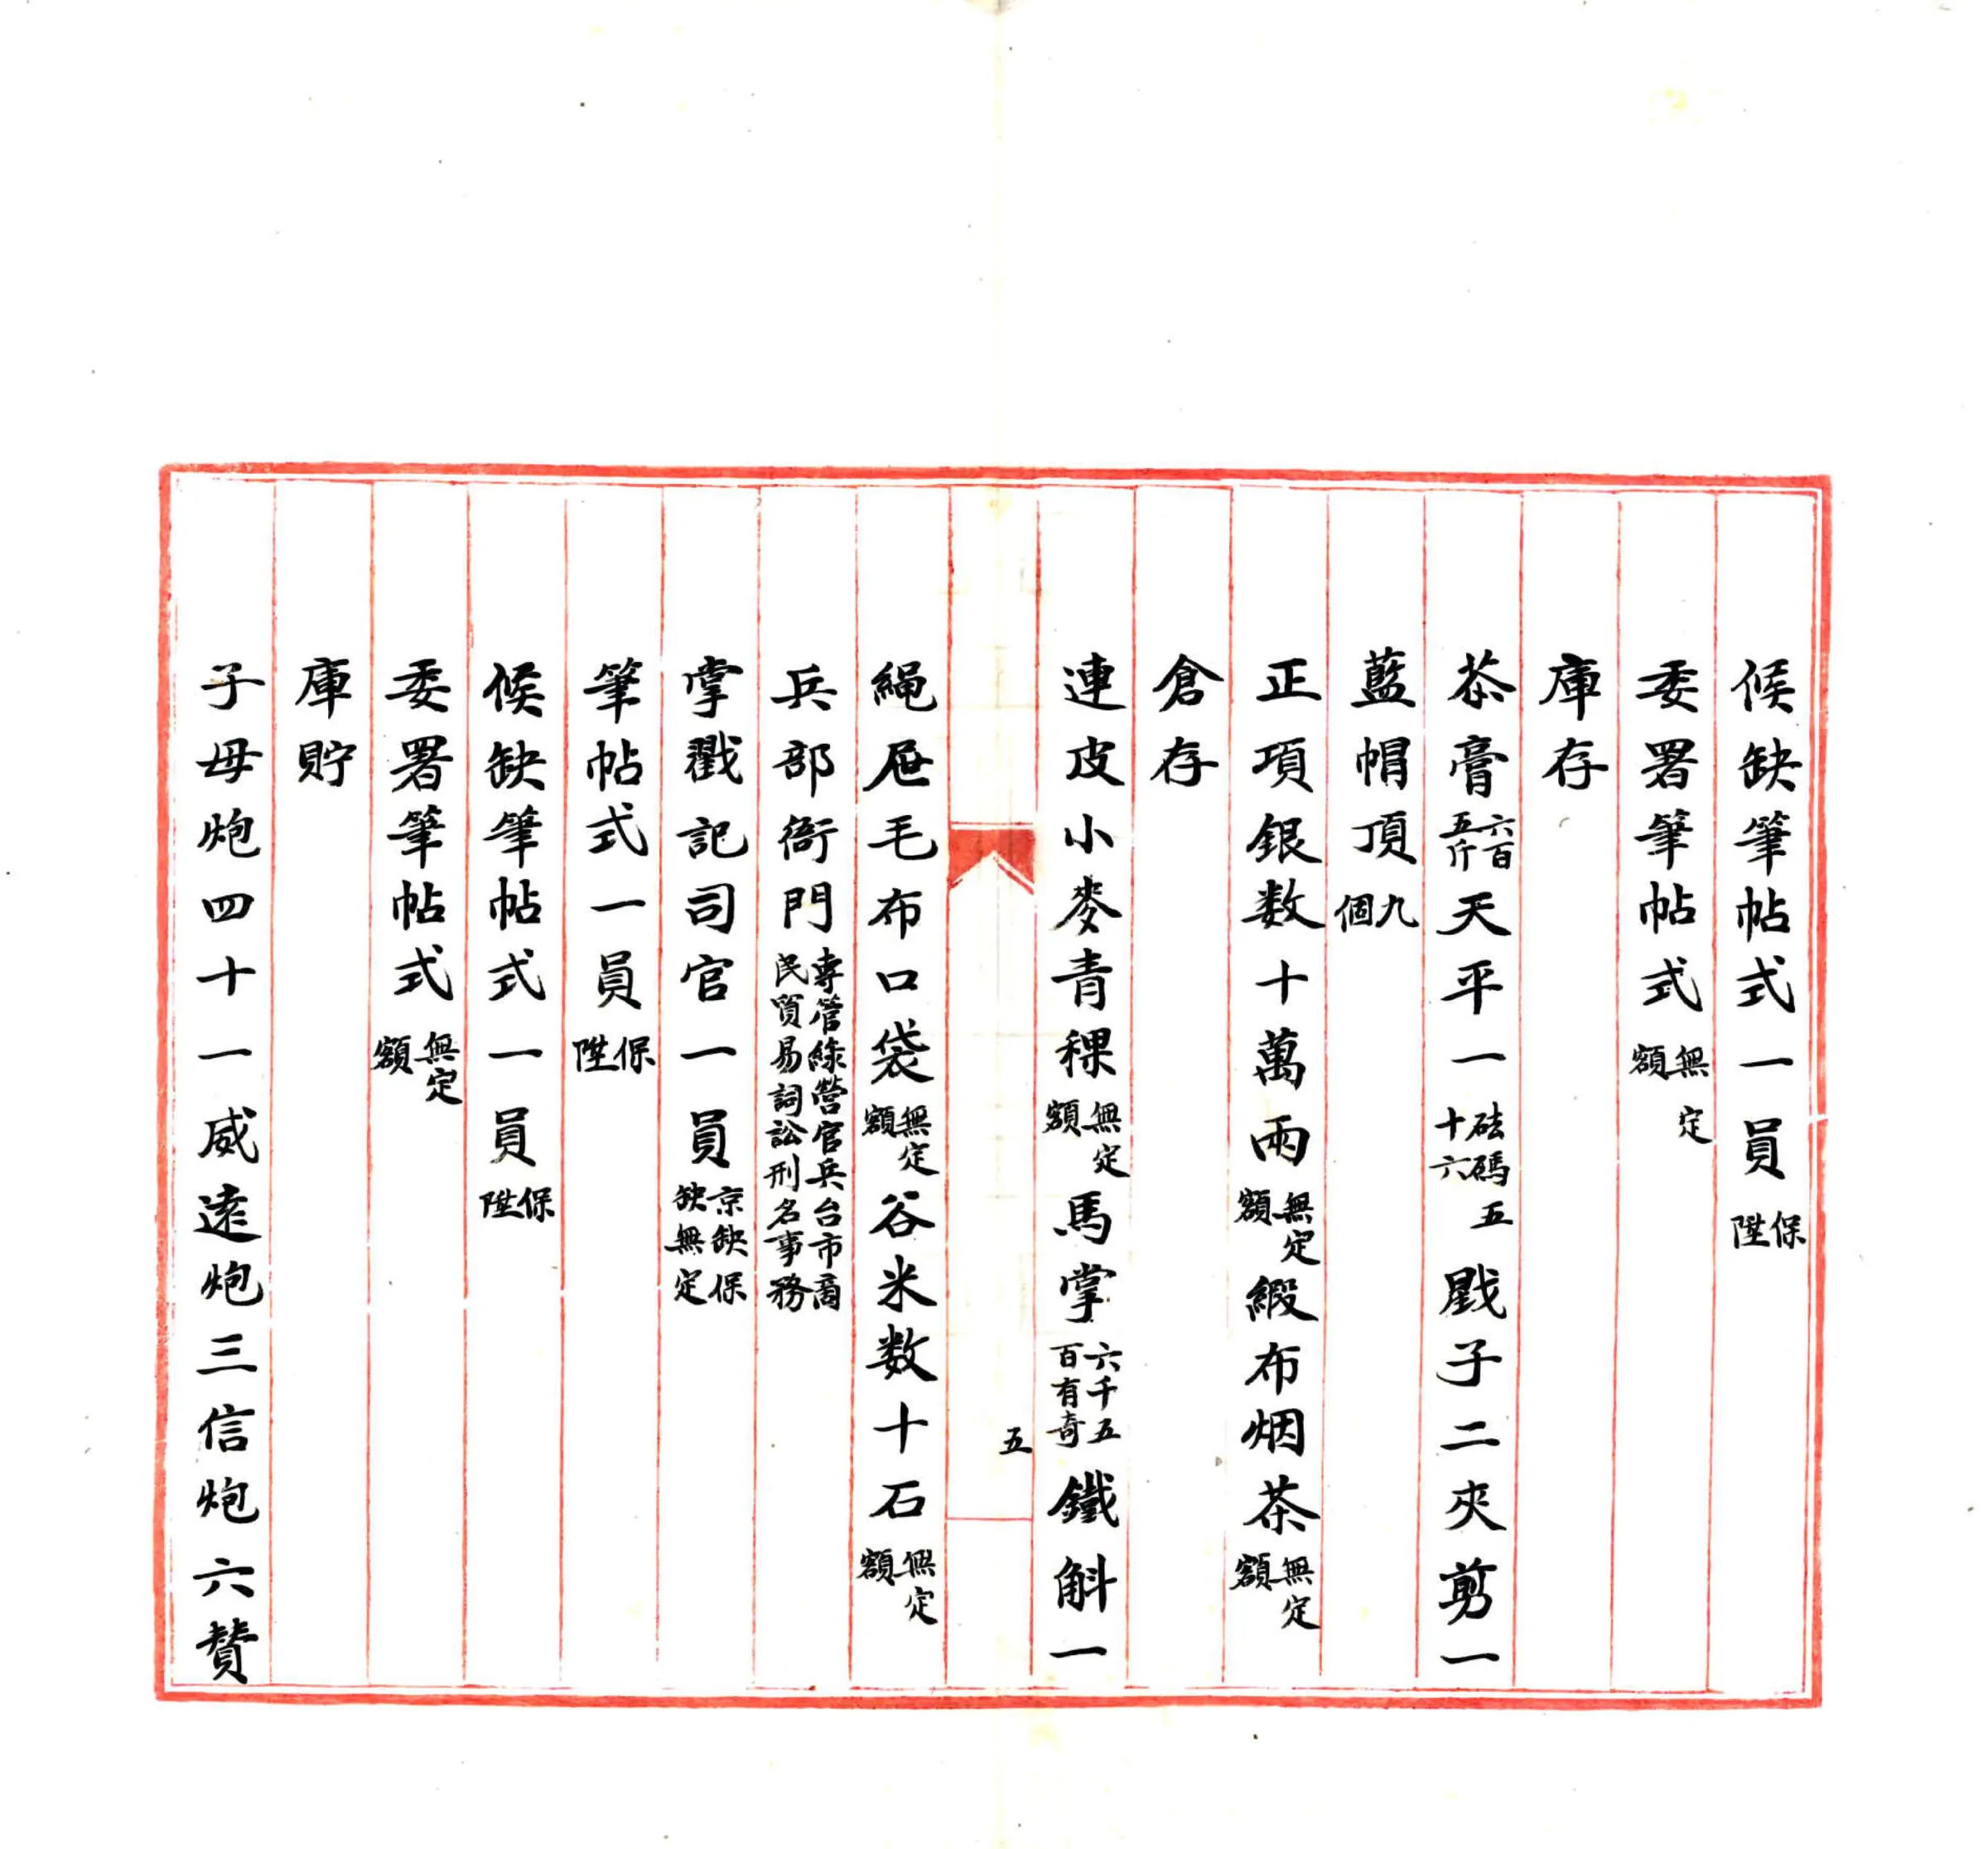 候缺筆帖式一員保陞
委署筆帖式無定額
庫存
茶膏六百五斤天平一砝碼五十六戥子二夾剪一
藍帽頂九個
正項銀数十萬兩無定額緞布烟茶無定額
倉存
連皮小麥青稞無定額馬掌六千五百有奇鐵斛一
五
繩屉毛布口袋無定額谷米数十石無定額
兵部衙門專管綠營官兵台市商民貿易詞訟刑名事務
掌戳記司官一員京缺保缺無定
筆帖式一員保陞
候缺筆帖式一員保陞
委署筆帖式無定額
庫貯
子母炮四十一威遠炮三信炮六贊